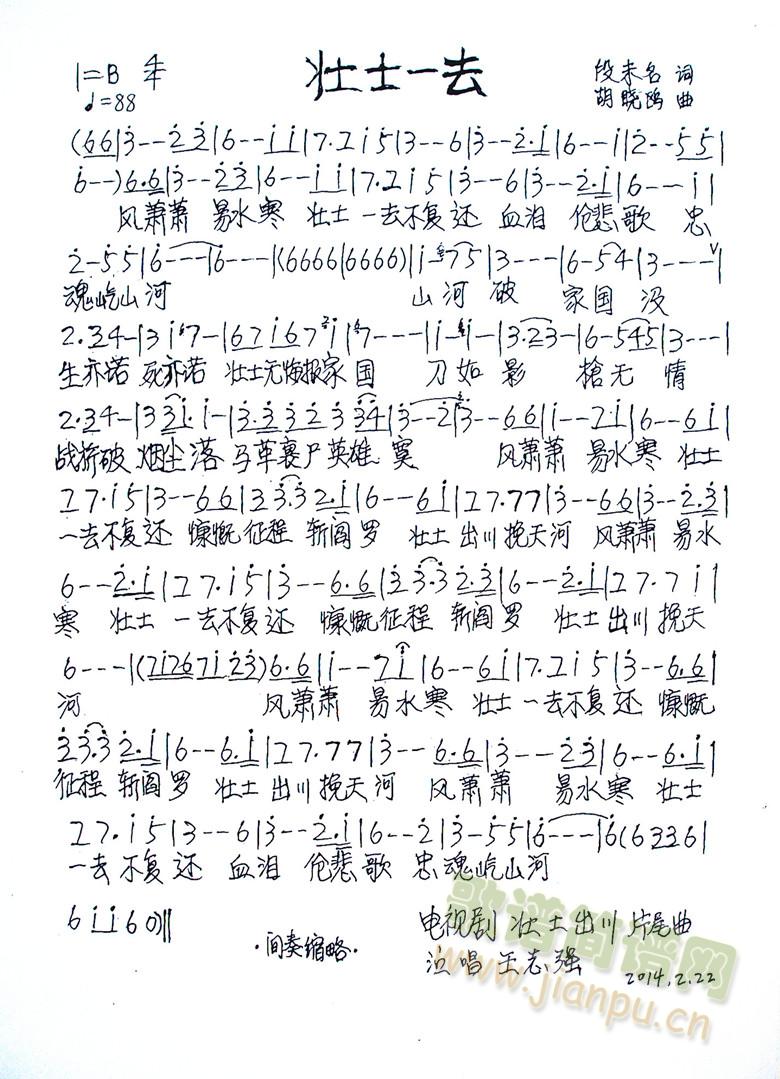 1=B 4/4 壮士一去 段未名 词
♩=88 胡晓鸥 曲
(6 6|3--2 3|6--i i|7.2 i 5|3--6|3--2.i|6--i|2--5 5|
6--)6.6|3--2 3|6--i i|7.2 i 5|3--6|3--2.i|6--i|
风萧萧 易水寒 壮士 一去不复还 血泪 伦悲歌 忠
2-5 5|6---|6---|(6666|6666)|i-7 5|3---|6-5 4|3---|
魂屹山河 山河 破 家国 没
2.34-|3 i 7-|6 7 i 6 7 i|7---|i-i-|3.23-|6-545|3---|
生亦诺 死亦诺 壮士无悔报家国 刀如影 枪无情
2.34-|3 3i.i-|3.3 3 2 3 34|3--2|3--66|i--7i|6--6i|
战折破 烟尘落 马革裹尸英雄寞 风萧萧 易水寒 壮士
27.i5|3--66|3 3.3 2.i|6--6i|27.77|3--66|3--2.3|
一去不复还 慷慨征程 斩阎罗 壮士出川挽天河 风萧萧 易水
6--2.i|27.i5|3--6.6|3 3.3 2.3|6--2.i|27.7i|
寒 壮士 一去不复还 慷慨征程 斩阎罗 壮士出川挽天
6---|(7i267i23)6.6|i--7i|6--6i|7.2i5|3--6.6|
河 风萧萧 易水寒 壮士 一去不复还 慷慨
3 3.3 2.i|6--6.i|27.77|3--6.6|3--23|6--6.i|
征程 斩阎罗 壮士出川挽天河 风萧萧 易水寒 壮士
27.i5|3--6|3--2.i|6--2|3-55|6---|6(6336|
一去不复还 血泪 伦悲歌 忠魂屹山河
6 i i 6 0)‖ ·间奏缩略· 电视剧 壮士出川 片尾曲
演唱 王志强 2014.2.22
歌谱简谱网
www.jianpu.cn